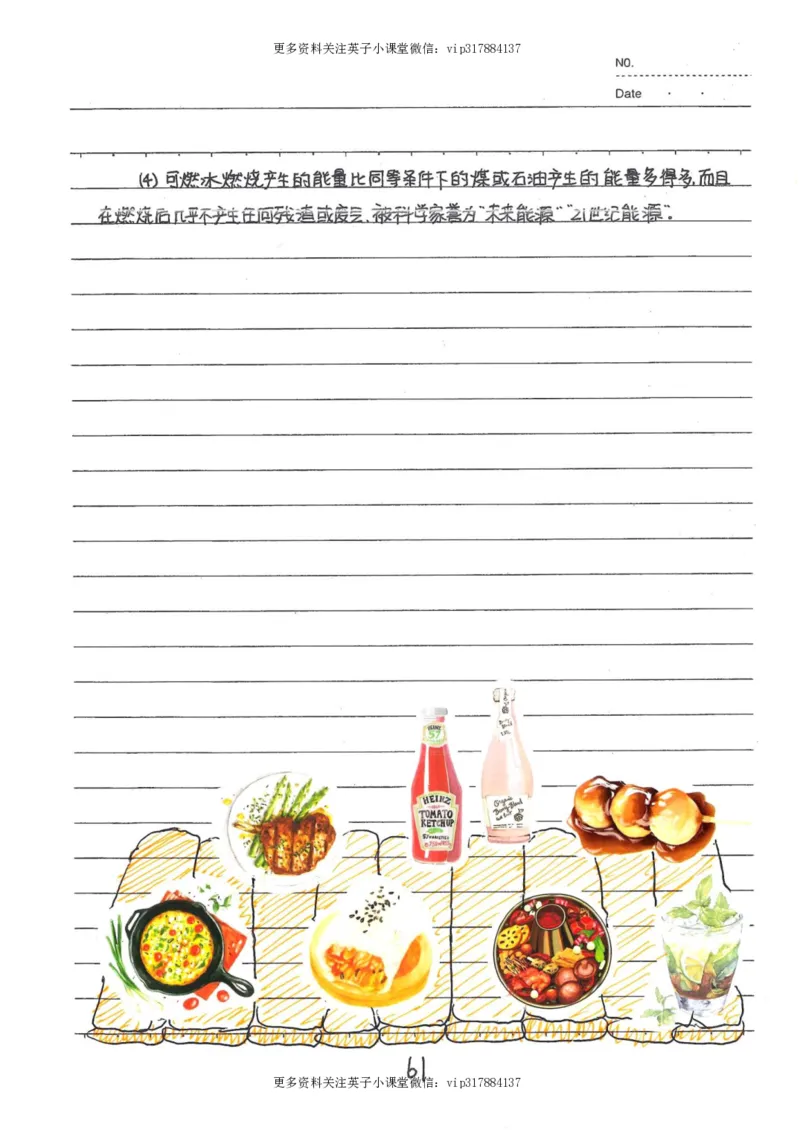 更多资料关注英子小课堂微信：vip317884137
N0.
Date
(4) 可燃冰燃烧产生的能量比同等条件下的煤或石油产生的能量多得多,而且
在燃烧后几乎不产生任何残渣或废气,被科学家誉为“未来能源”“21世纪能源”.
HEINZ
57
HEINZ
TOMATO
KETCHUP
57 VARIETIES
61
更多资料关注英子小课堂微信：vip317884137